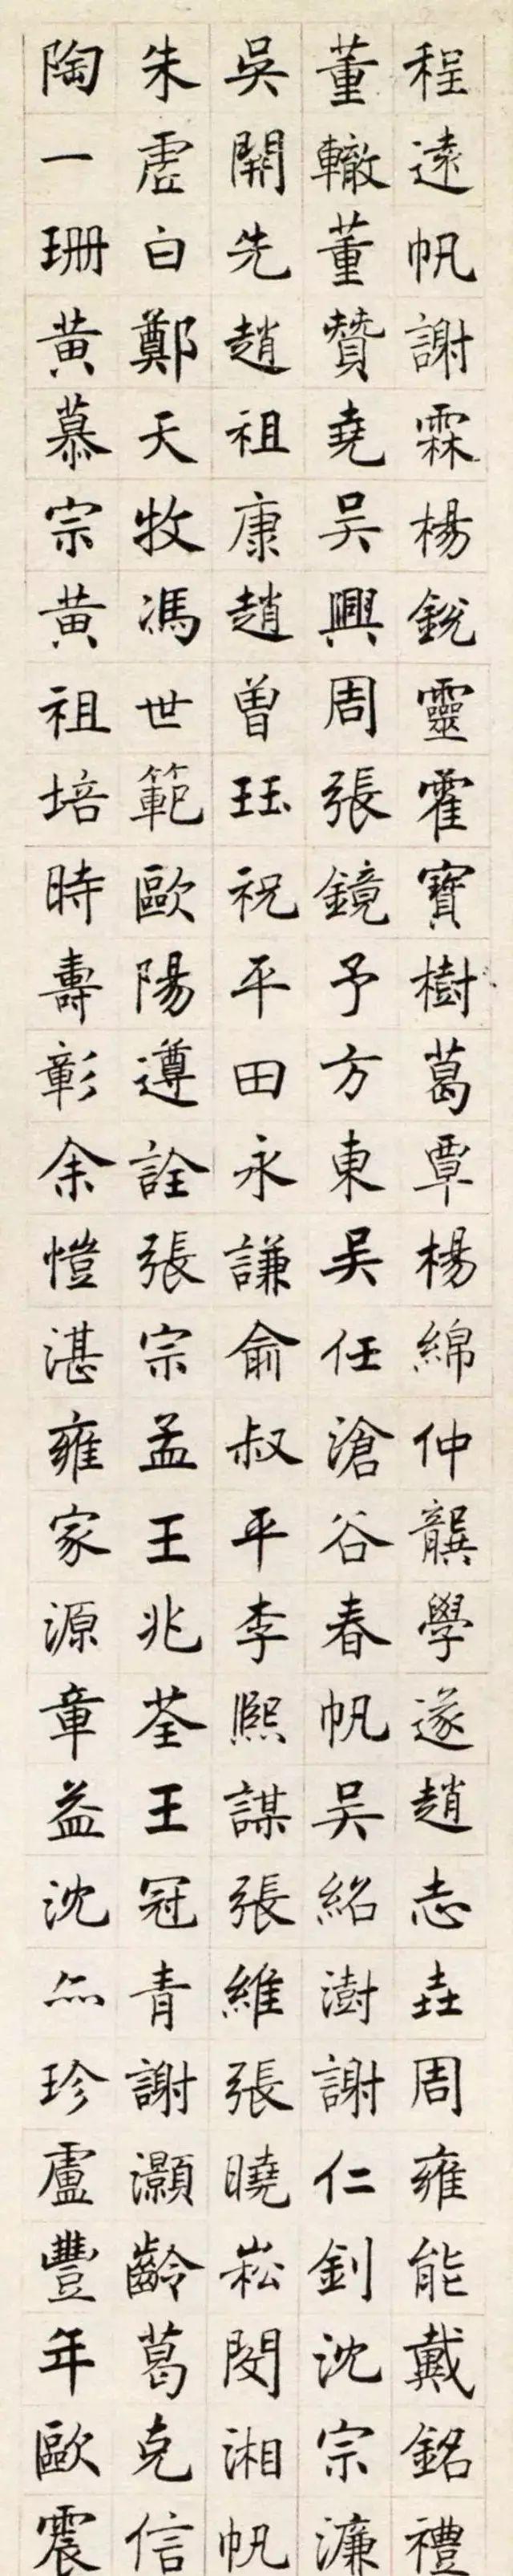 程遠帆謝霖楊銳靈霍寶樹葛覃楊綿仲龔學遂趙志垚周雍能戴銘禮
董轍董贊堯吴興周張鏡予方東吴任滄谷春帆吴紹澍謝仁釗沈宗濂
吳開先趙祖康趙曾珏祝平田永謙俞叔平李熙謀張維張曉崧閔湘帆
朱虛白鄭天牧馮世範歐陽遵詮張宗孟王兆荃王冠青謝灝齡葛克信
陶一珊黃慕宗黃祖培時壽彰余愷湛雍家源章益沈珍盧豐年歐震